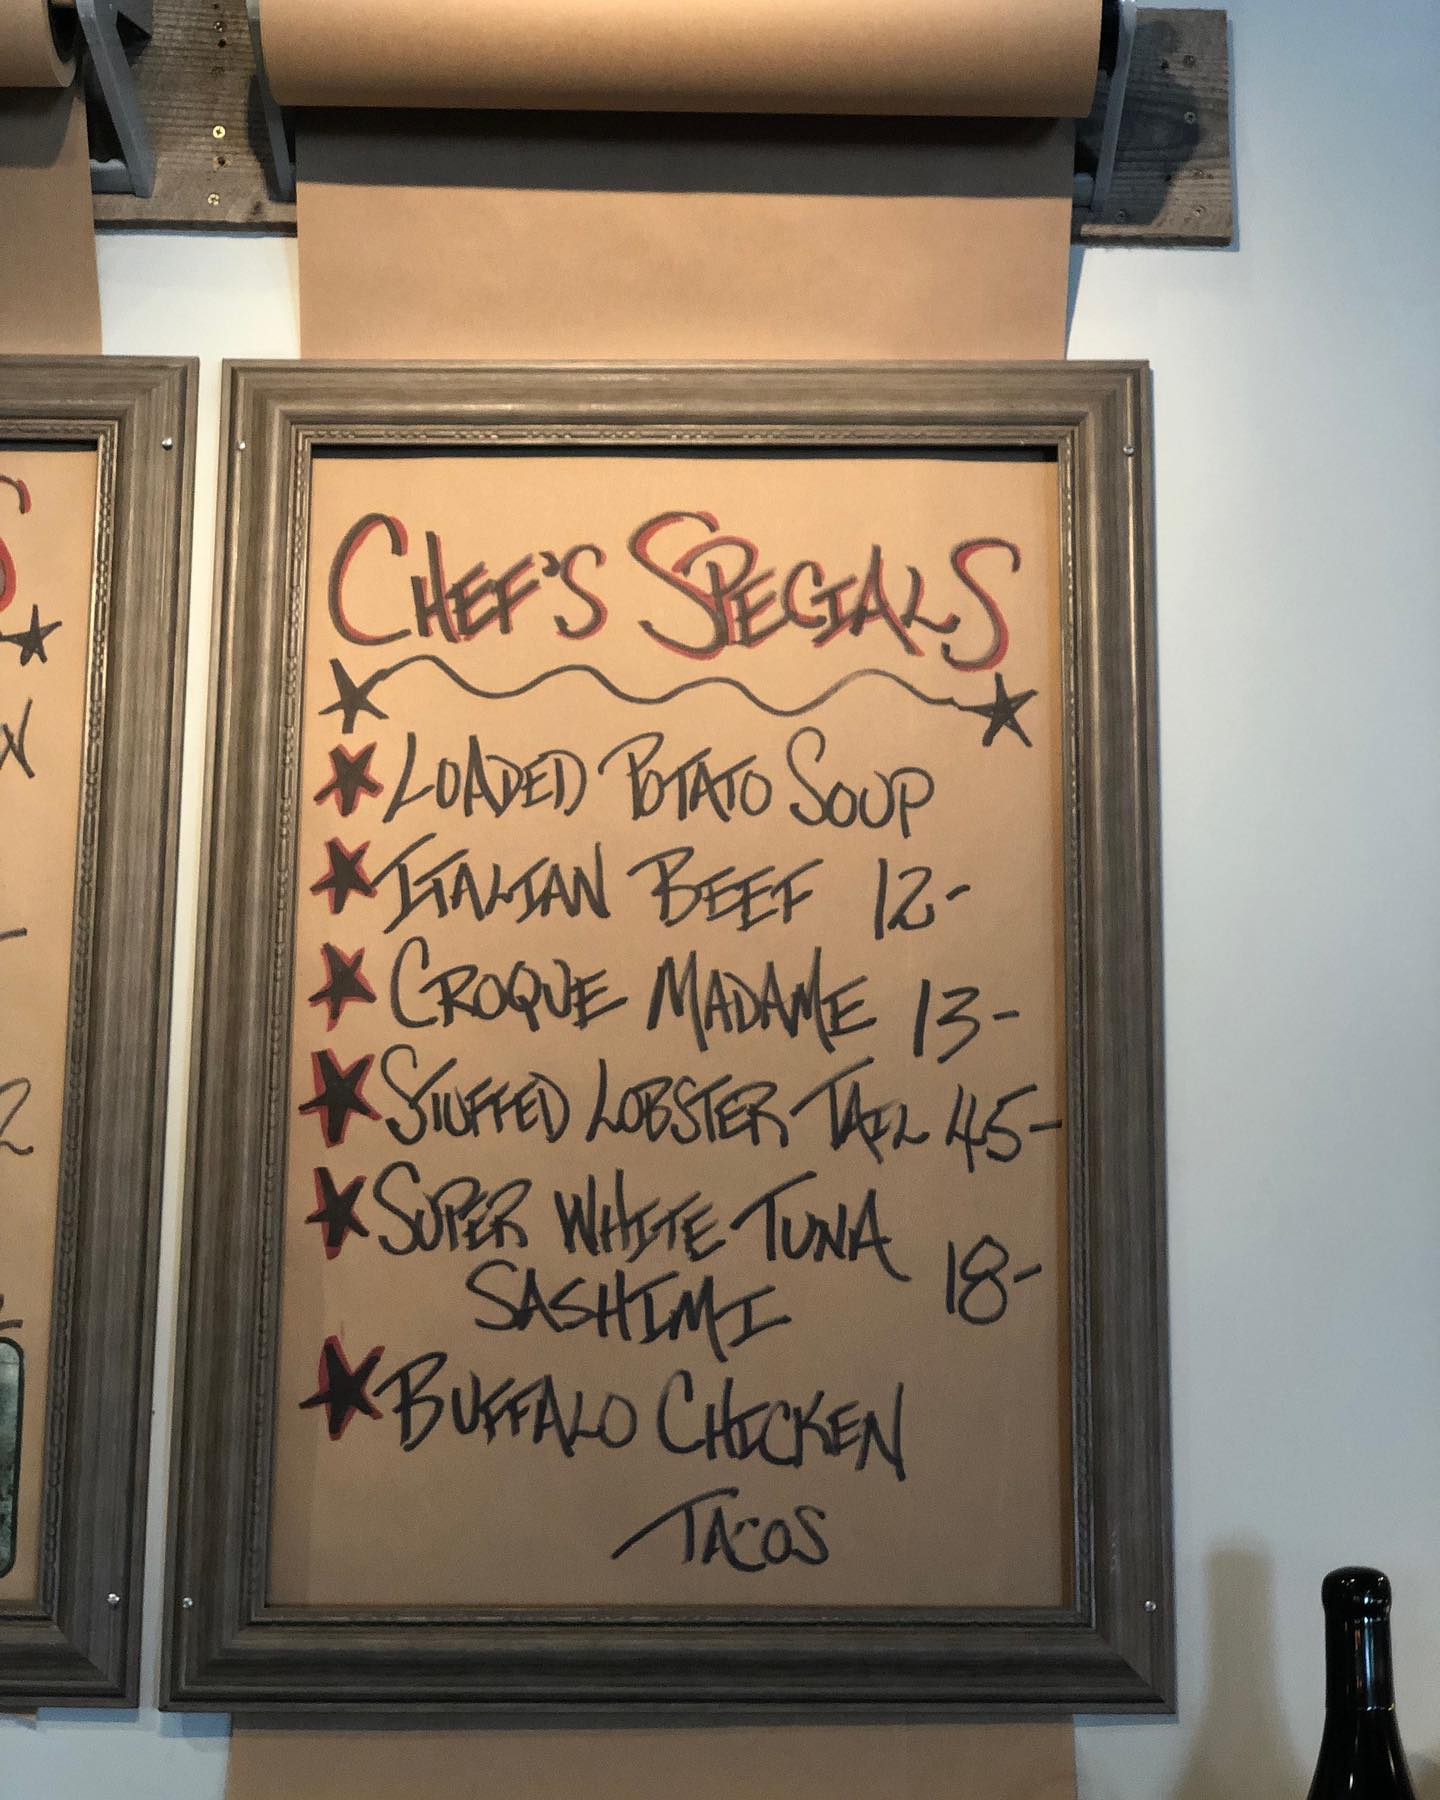 CHEF'S SPECIALS
LOADED POTATO SOUP
ITALIAN BEEF 12-
CROQUE MADAME 13-
STUFFED LOBSTER TAIL 45-
SUPER WHITE TUNA
SASHIMI 18-
BUFFALO CHICKEN
TACOS